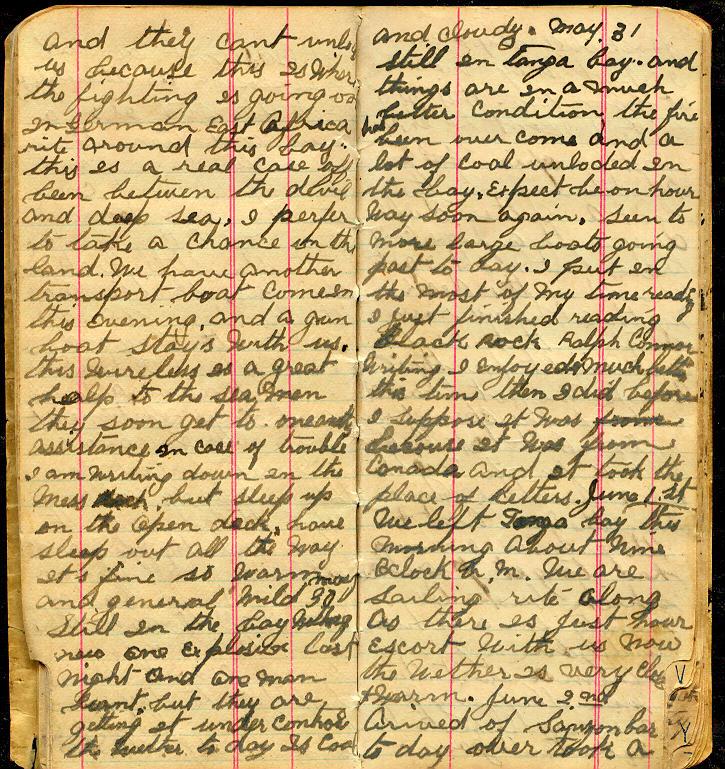 and they cant unlo
us because this is wher
the fighting is going on
in German East Africa
rite around this bay.
this is a real case of
been between the devil
and deep sea, I perfer
to take a chance in the
land. We have another
transport boat come in
this evening, and a gun
boat stays with us.
this wireless is a great
healp to the sea men
they soon get to oneanth
assistance in case of trouble
I am writing down in the
mess but sleep up
on the open deck, have
sleep out all the way
its fine so warm
and general mild may 30
Still in the bay
one explosion last
night and one man
burnt, but they are
getting it under controle
the wether to day is cool
and cloudy. May. 31
still in tanga bay. and
things are in a much
better condition, the fire
has been over come and a
lot of coal unloded in
the bay, expect be on hour
way soon again, seen to
more large boats going
past to day. I put in
the most of my time readg
I just finished reading
Black rock Ralph Connor
writing I enjoyed much bette
this time then I did before
I suppose it was from
because it was from
Canada and it took the
place of letters. June 1.st
We left Tonga bay this
morning about nine
oclock A.M. We are
sailing rite along
as there is just hour
escort with us now
the wether is very
+ warm. June 2nd
arived of Sanzonbar
to day over took a